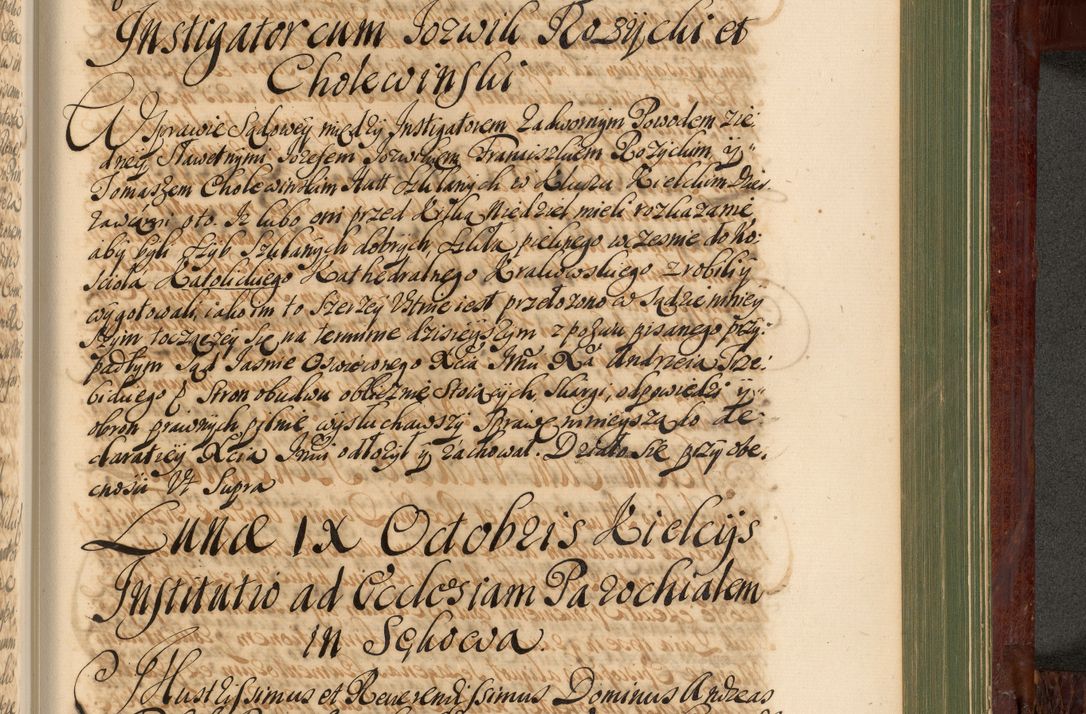 Instigator cum Jozwik Rozÿcki et
Cholewinski
W Sprawie Sądoweÿ międzÿ Instigatorem Zadwornÿm Powodem zie
dneÿ Sławetnÿmi Jozefem Jozwikiem Franciszkiem Rozÿckim, ÿ
Tomaszem Cholewinskim Hutt Szklanÿch w Kluczu Kieleckim Dzier
zawcami oto Iz lubo oni przed kilką Niedziel mieli rozkazanie,
abÿ bÿli Szÿb Szklanÿch dobrÿch, Szkła pięknego wczesnie do Ko:
sciola Katolickiego Kathedralnego Krakowskiego zrobili ÿ
wÿgotowali, iako im to szerzeÿ Vtmie iest przełozono w Sądzie ninieÿ
szÿm toczączeÿ się na terminie dzisieÿszÿm z pozwu pisanego przÿ:
padłÿm Sąd Jasnie Oswieconego Xcia Jmci Xa Andrzeia Trze:
bickiego p Stron obudwu oblicznie Stoiącÿch, skargi, odpowiedzi ÿ
obron prawnÿch pilnie wÿsłuchawszÿ Sprawę ninieÿszą do de:
claratieÿ Xcia Jmci odłozÿł ÿ zachował. Działo się przÿ obe,
cnosci Vt Supra
Lunæ IX Octobris Kielcijs
Institutio ad Ecclesiam Parochialem
in Sękowa.
Illustrissimus et Reuerendissimus Dominus Andreas